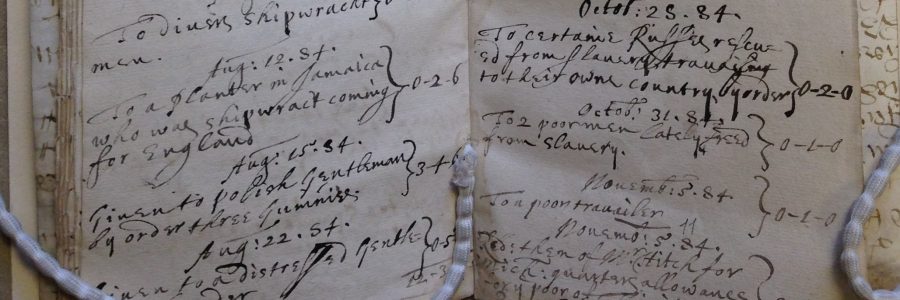 To divers shipwrackt
men.
Aug: 12. 84.
To a planter in Jamaica
who was shipwract coming
for England
0-2-6
Aug: 15. 84.
Given to polish Gentleman
by order three Guinnies.
3-4-6
Aug: 22. 84.
Given to a distressed Gentle
0-5
Octob: 28. 84.
To certaine Russes rescu-
ed from slavery travailing
to their owne country by order
0-2-0
Octob: 31. 84.
To 2 poor men lately freed
from slavery.
0-1-0
Novemb: 5. 84.
To a poor travailer
0-1-0
Novemb: 5. 84.
of Mr Titch for
quarters allowance
poor